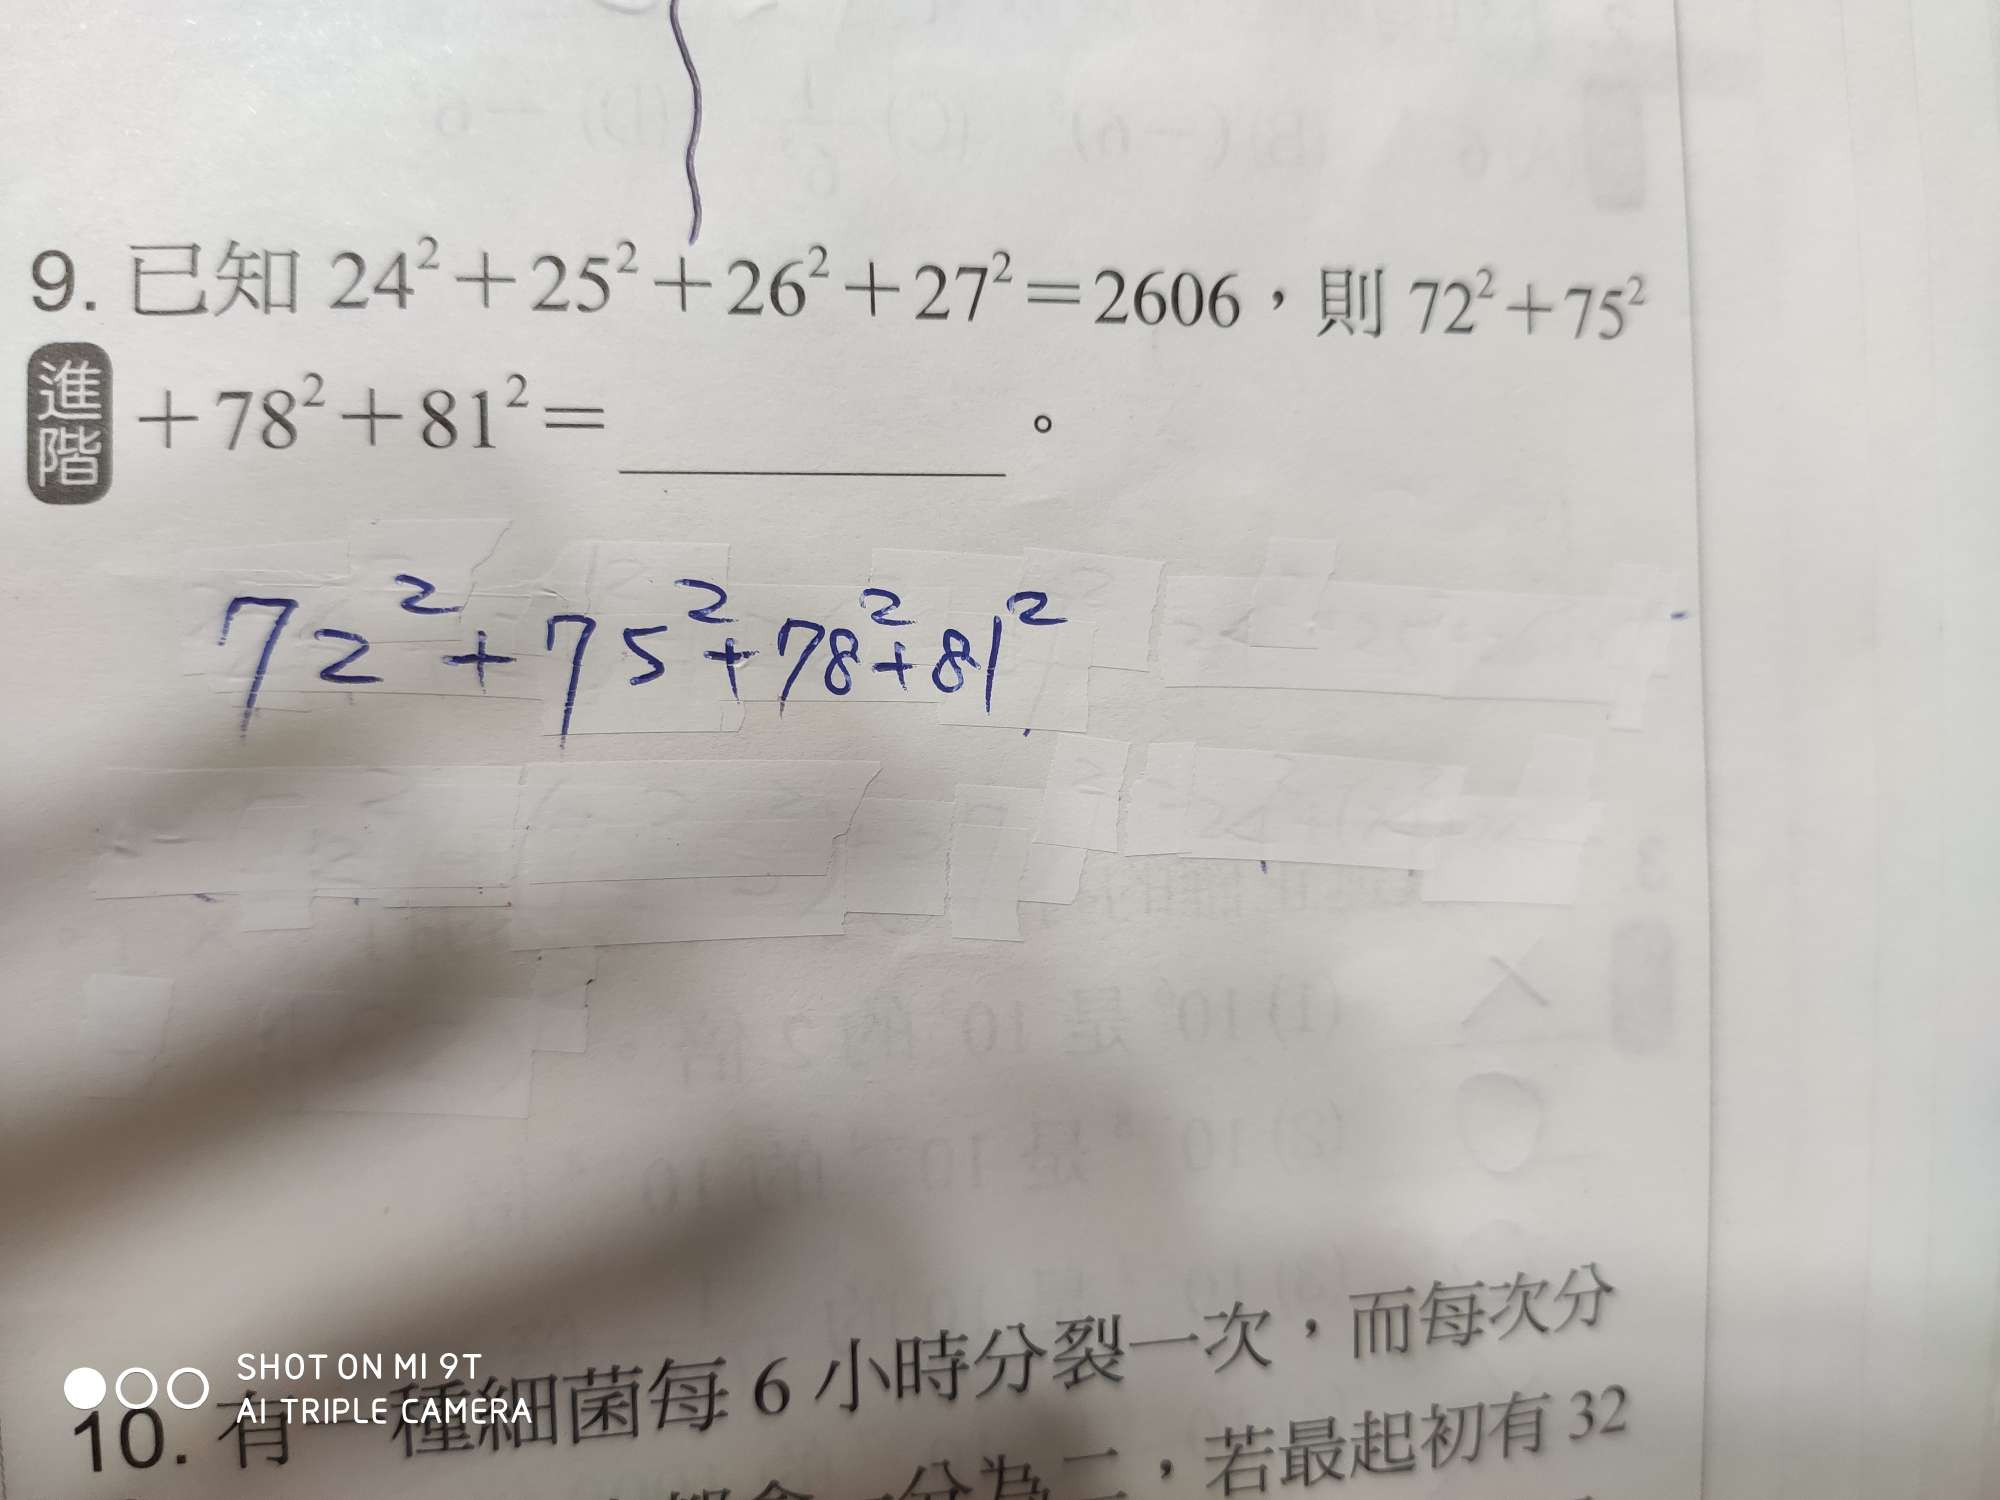 9. 已知 24²+25²+26²+27²=2606，則 72²+75²
進階 +78²+81²=__________。
72²+75²+78²+81²
10. 有一種細菌每 6 小時分裂一次，而每次分
一分為二，若最起初有 32
SHOT ON MI 9T
AI TRIPLE CAMERA